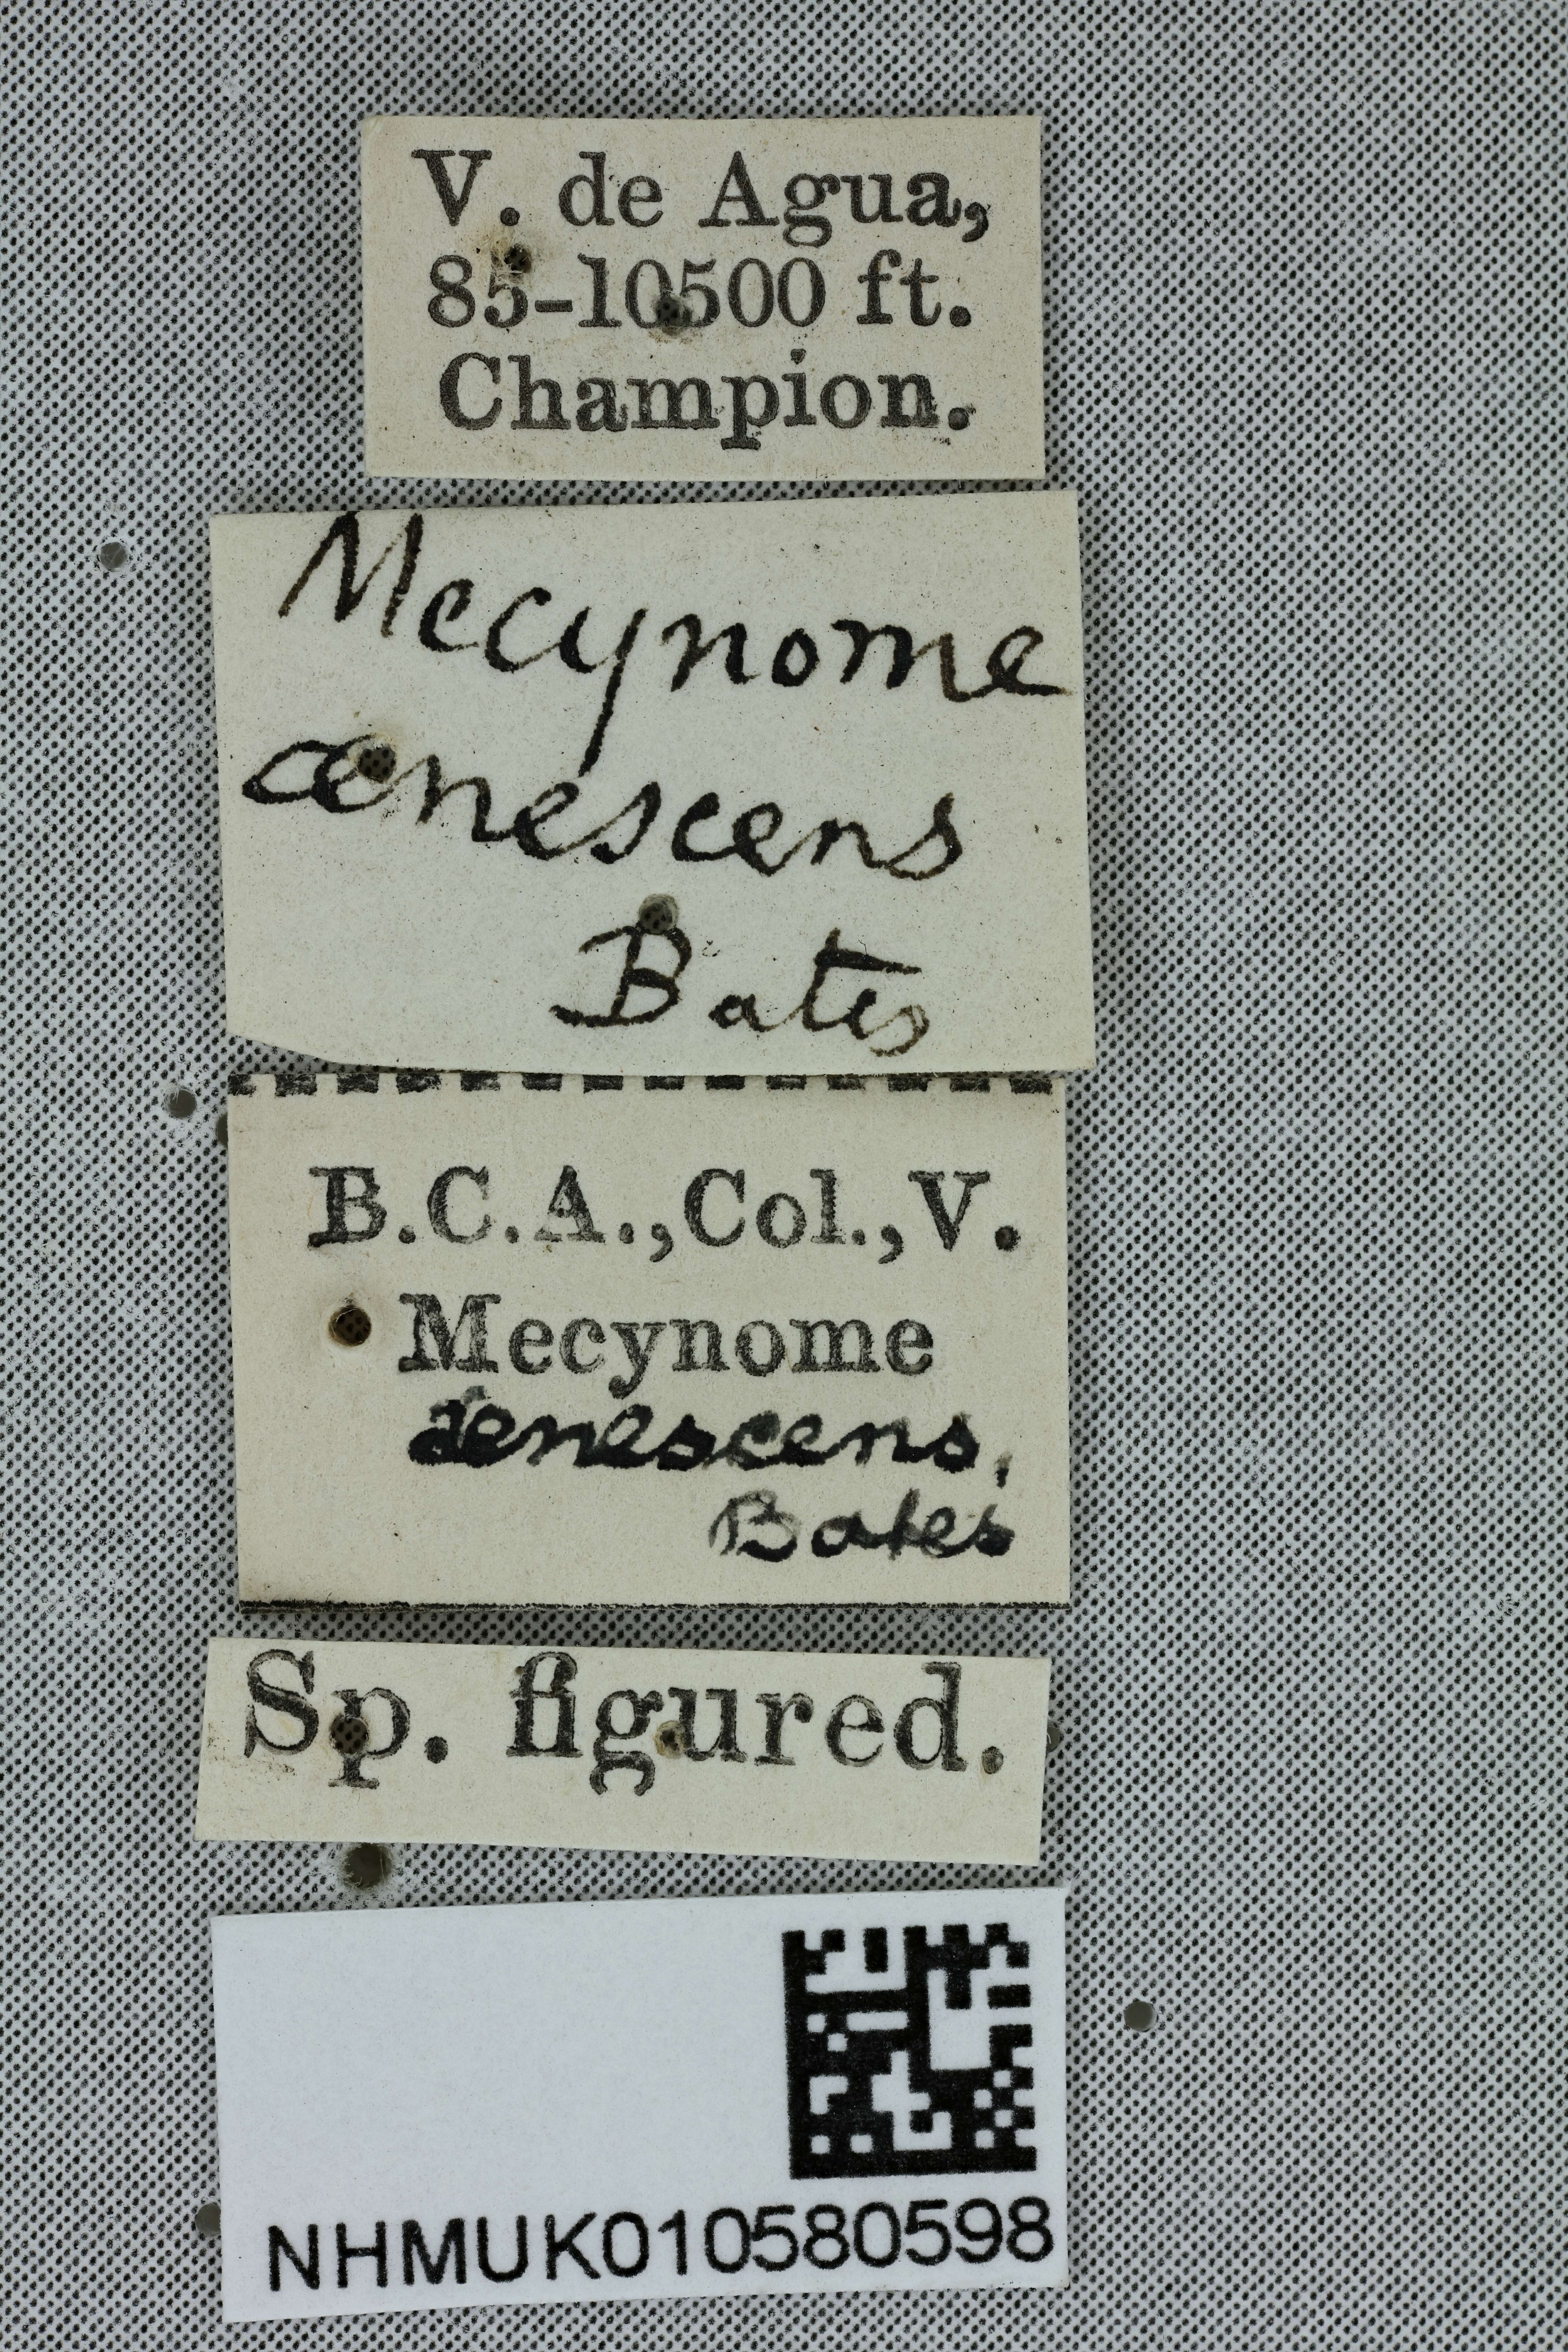 V. de Agua,
85-10500 ft.
Champion.
Mecynome
ænescens
Bates
B.C.A., Col., V.
Mecynome
aenescens,
Bates
Sp. figured.
NHMUK010580598